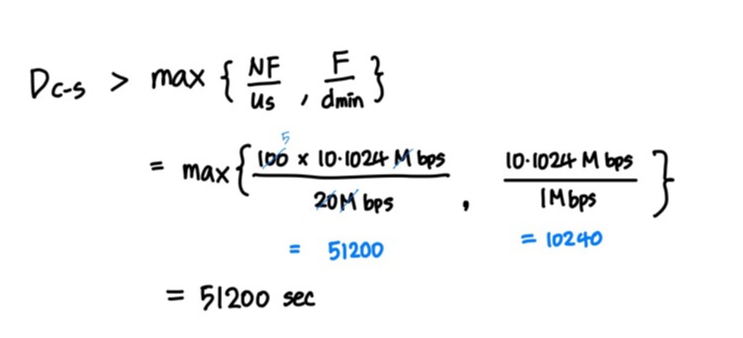 Dc-s > max { NF/us , F/dmin }
= max { 100 x 10·1024 M bps / 20M bps , 10·1024 M bps / 1Mbps }
5
= 51200
= 10240
= 51200 sec